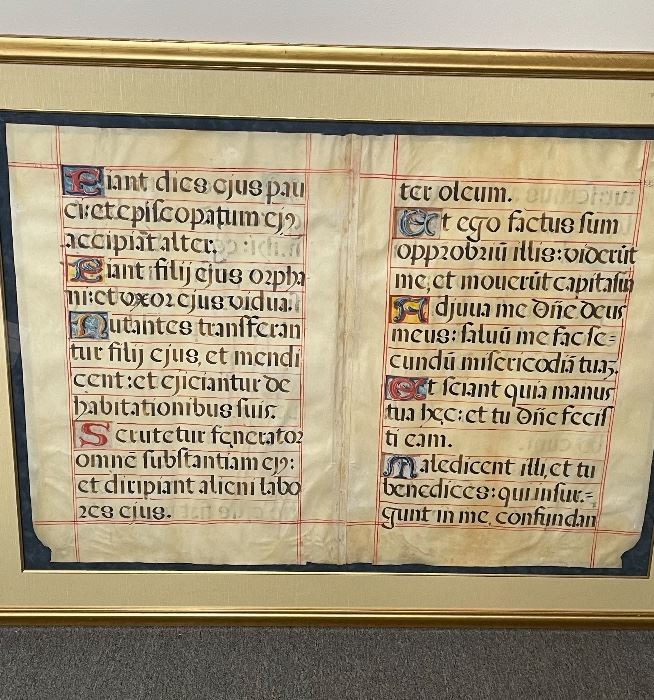 Fiant dies ejus pau
ci: et episcopatum ejꝰ
accipiāt alter.
Fiant filij ejus orpha
ni: et vxor ejus vidua.
Nutantes transferan
tur filij ejus, et mendi
cent: et ejiciantur de
habitationibus suis.
Scrutetur fęnerator
omnē substantiam ejꝰ:
et diripiant alieni labo
res ejus.
ter oleum.
Et ego factus sum
opprobriū illis: viderūt
me, et mouerūt capita sua
Adjuua me Dñe deus
meus: saluū me fac se=
cundū misericodiā tuaꝫ.
Et sciant quia manus
tua hęc: et tu Dñe fecis
ti eam.
Maledicent illi, et tu
benedices: qui insur=
gunt in me, confundan